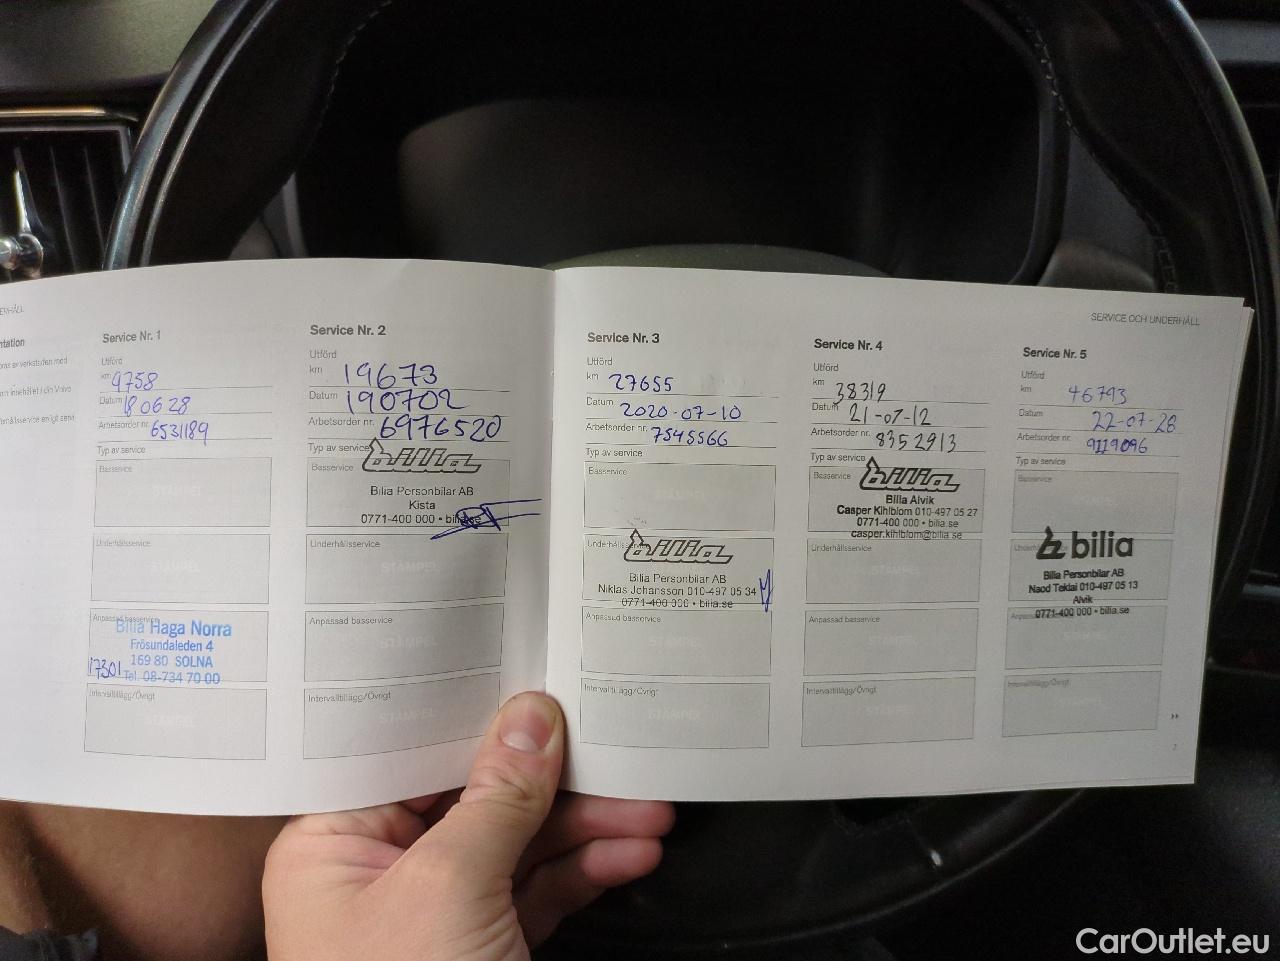 Service Nr. 1
Utförd
km 9758
Datum 180628
Arbetsorder nr. 6531189
Typ av service
Basservice
STÄMPEL
Underhållsservice
STÄMPEL
Anpassad basservice
Bilia Haga Norra
Frösundaleden 4
169 80 SOLNA
17301 Tel. 08-734 70 00
Intervalltillägg/Övrigt
STÄMPEL
Service Nr. 2
Utförd
km 19673
Datum 190702
Arbetsorder nr. 6976520
Typ av service
Basservice
bilia
Bilia Personbilar AB
Kista
0771-400 000 • bilia.se
Underhållsservice
STÄMPEL
Anpassad basservice
STÄMPEL
Intervalltillägg/Övrigt
STÄMPEL
SERVICE OCH UNDERHÅLL
Service Nr. 3
Utförd
km 27655
Datum 2020-07-10
Arbetsorder nr. 7545566
Typ av service
Basservice
STÄMPEL
bilia
Bilia Personbilar AB
Niklas Johansson 010-497 05 34
0771-400 000 • bilia.se
Anpassad basservice
STÄMPEL
Intervalltillägg/Övrigt
STÄMPEL
Service Nr. 4
Utförd
km 38319
Datum 21-07-12
Arbetsorder nr. 8352913
Typ av service
Basservice
bilia
Bilia Alvik
Casper Kihlblom 010-497 05 27
0771-400 000 • bilia.se
casper.kihlblom@bilia.se
Underhållsservice
STÄMPEL
Anpassad basservice
STÄMPEL
Intervalltillägg/Övrigt
STÄMPEL
Service Nr. 5
Utförd
km 46793
Datum 22-07-28
Arbetsorder nr. 9119096
Typ av service
Basservice
STÄMPEL
bilia
Bilia Personbilar AB
Naod Teklai 010-497 05 13
Alvik
0771-400 000 • bilia.se
Anpassad basservice
STÄMPEL
Intervalltillägg/Övrigt
STÄMPEL
7
CarOutlet.eu